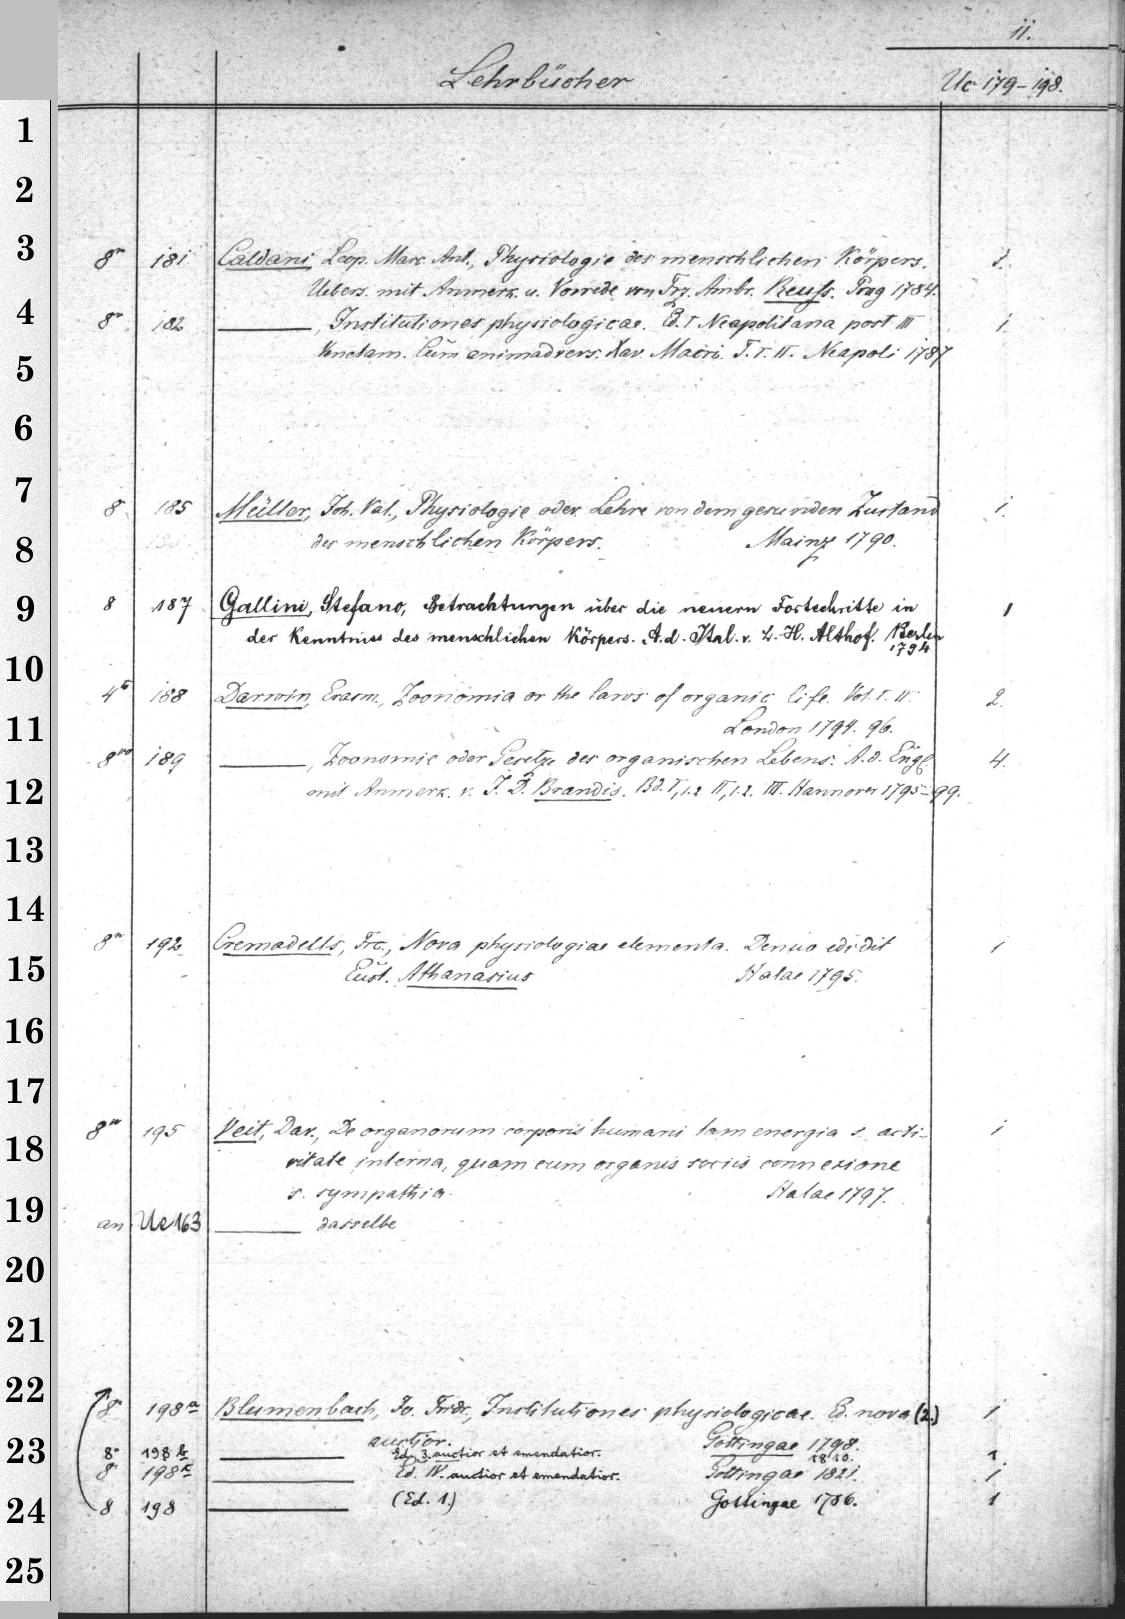 11.
Lehrbücher Uc 179-198.
1
2
3
8vo 181 Caldani, Leop. Marc. Ant., Physiologie des menschlichen Körpers. 1.
Uebers. mit Anmerk. u. Vorrede von Frz. Ambr. Reuss. Prag 1784.
4
8vo 182 ———, Institutiones physiologicae. Ed. I Neapolitana post III 1.
Venetam. Cum animadvers. Xav. Macri. T. I. II. Neapoli 1787
5
6
7
8 185 Müller, Joh. Val., Physiologie oder Lehre von dem gesunden Zustand 1.
des menschlichen Körpers. Mainz 1790.
8
9
8 187 Gallini, Stefano, Betrachtungen über die neuern Fortschritte in 1
der Kenntniss des menschlichen Körpers. A. d. Ital. v. L. H. Althof. Berlin
1794
10
4to 188 Darwin, Erasm., Zoonomia or the laws of organic life. Vol. I. II. 2.
London 1794. 96.
11
8vo 189 ———, Zoonomie oder Gesetze des organischen Lebens. A. d. Engl. 4.
mit Anmerk. v. J. D. Brandis. Bd. I,1.2 II,1.2. III. Hannover 1795-99.
12
13
14
8vo 192 Cremadells, Frc., Nova physiologiae elementa. Denuo edidit 1
Eust. Athanasius Halae 1795.
15
16
17
8vo 195 Veit, Dav., De organorum corporis humani tam energia s. acti- 1
vitate interna, quam cum organis sociis connexione
s. sympathia. Halae 1797.
18
19
an Ue 163 ——— dasselbe
20
21
22
8o 198a Blumenbach, Jo. Frdr., Institutiones physiologicae. Ed. nova (2.) 1
auctior. Gottingae 1798.
23
8o 198b ——— Ed. 3. auctior et emendatior. 1810. 1.
8o 198c ——— Ed. IV. auctior et emendatior. Gottingae 1821. 1
24
8 198 ——— (Ed. 1.) Gottingae 1786. 1
25